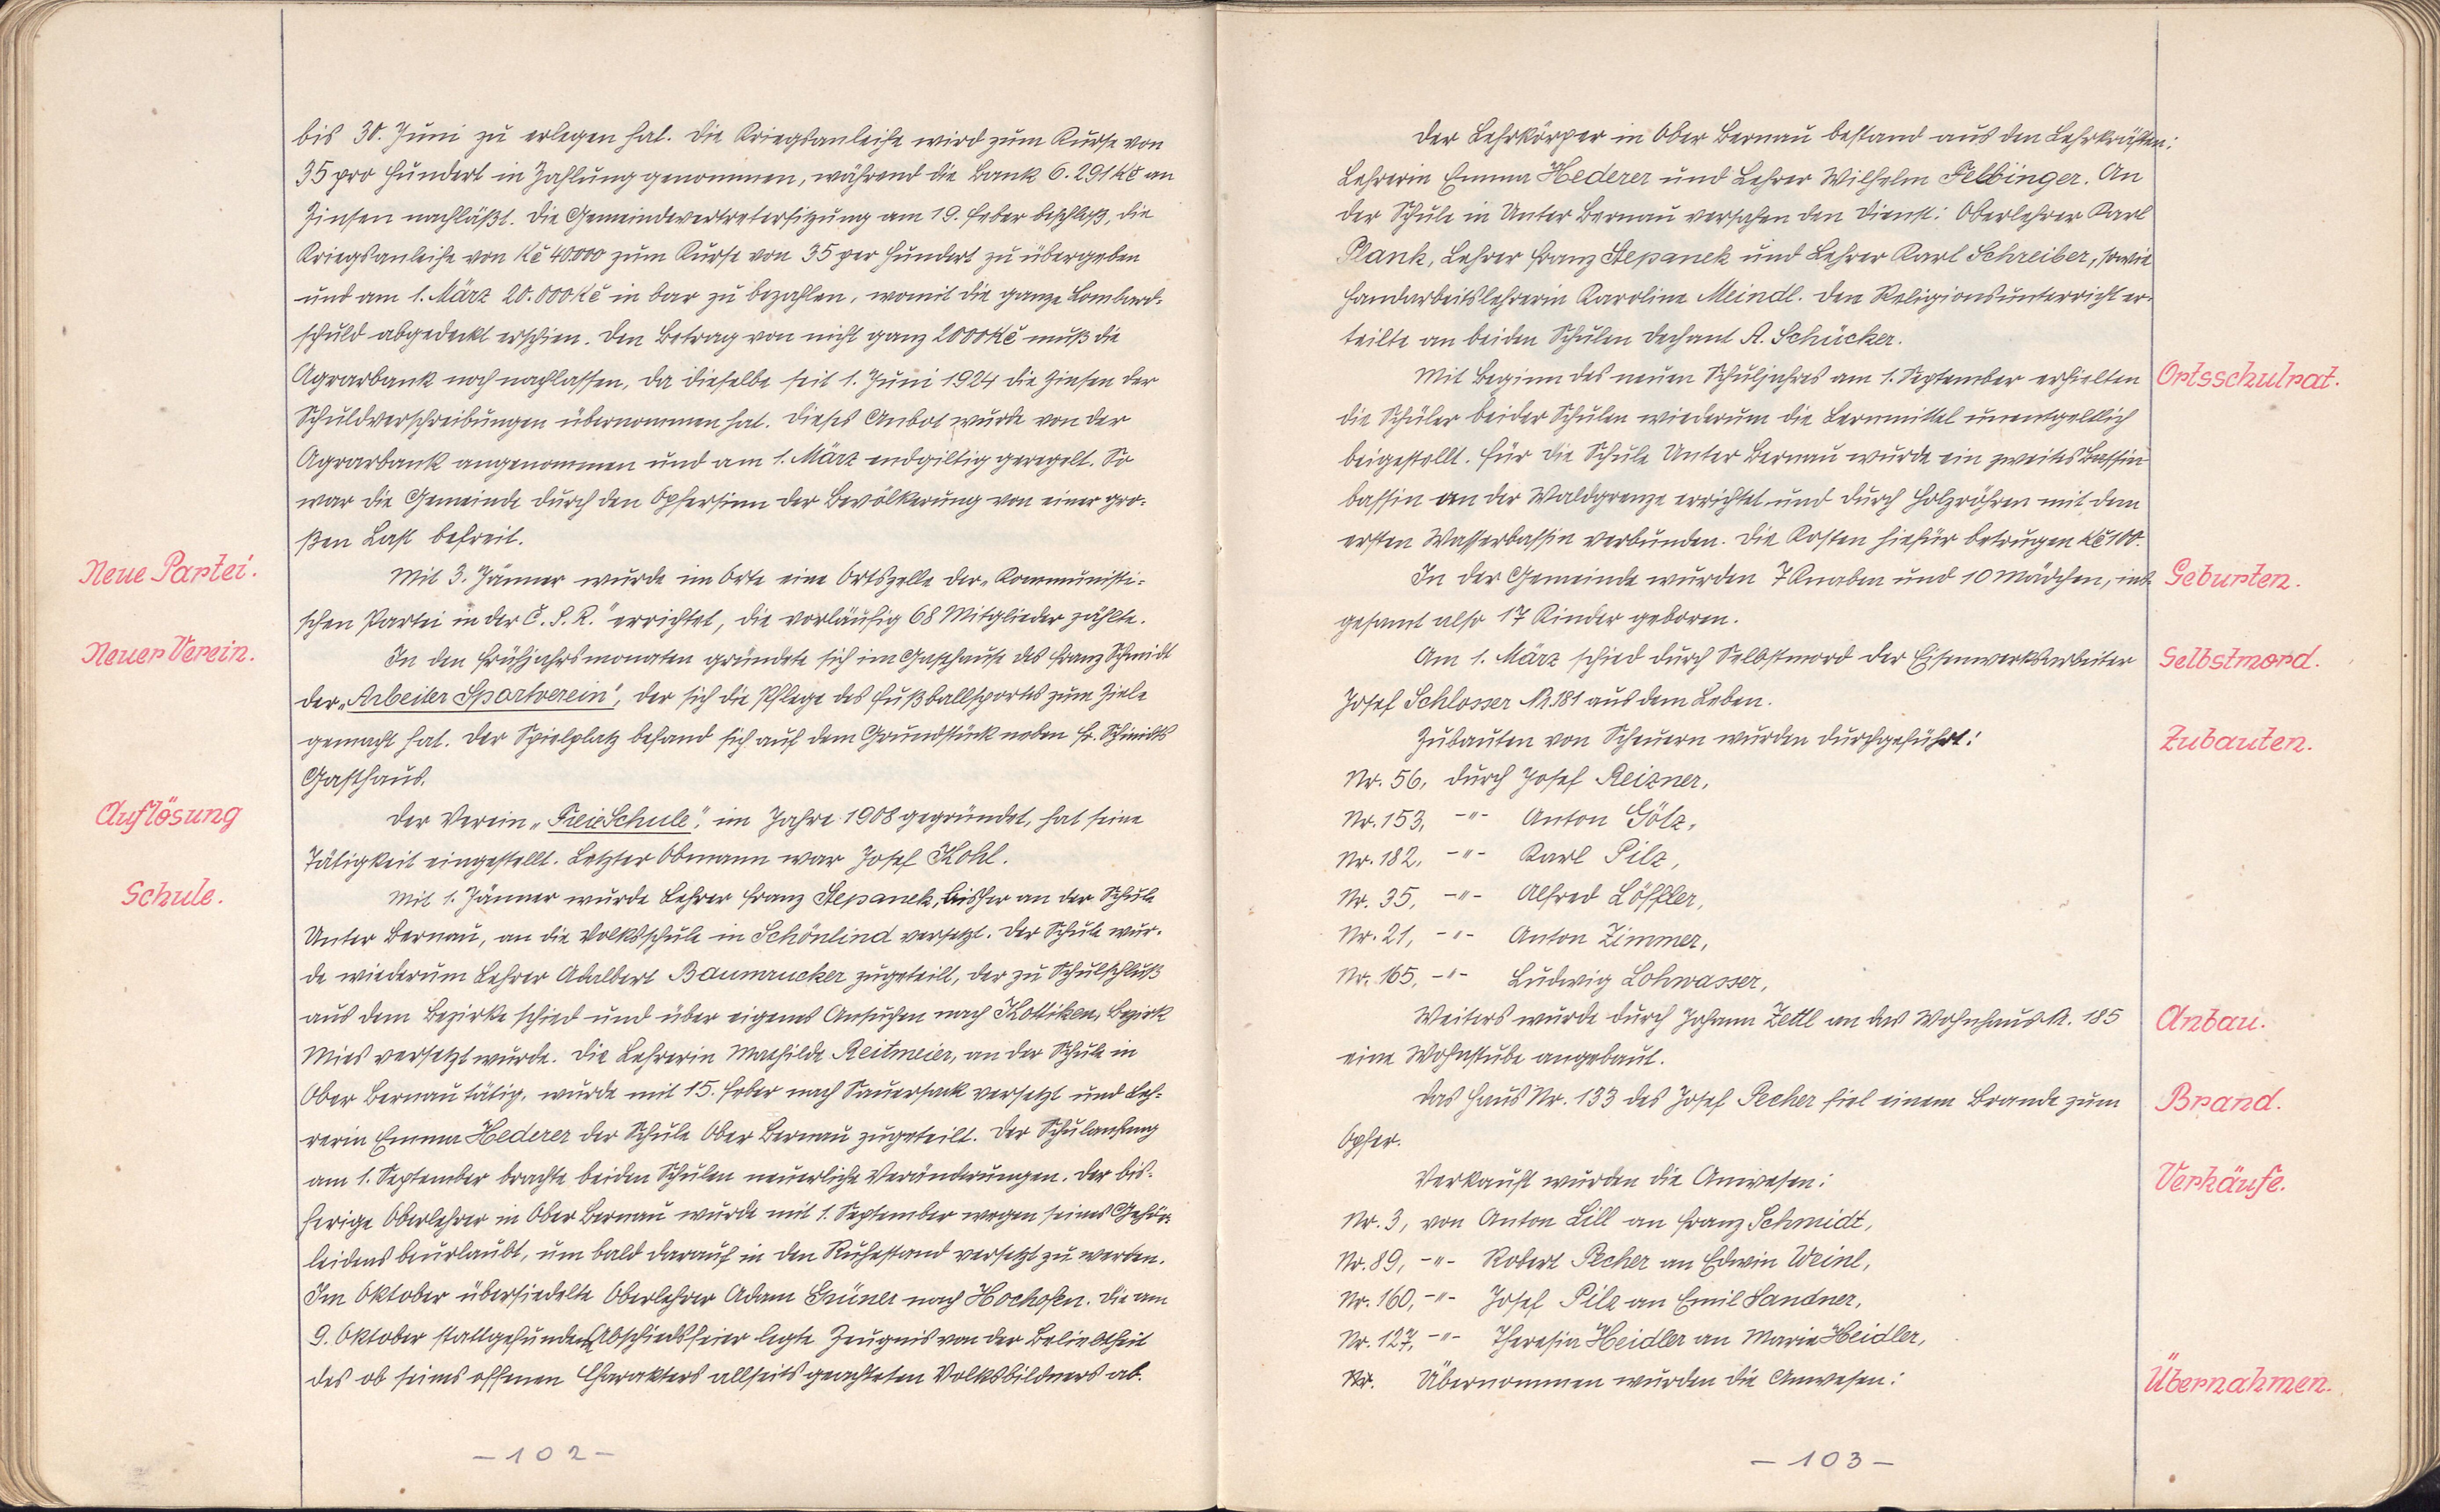 bis 30. Juni zu erlegen hat. Die Kriegsanleihe wird zum Kurse von
35 pro Hundert in Zahlung genommen, während die Bank 6.291 Kč an
Zinsen nachläßt. Die Gemeindevertretersitzung am 19. Feber beschloß, die
Kriegsanleihe von Kč 40000 zum Kurse von 35 per Hundert zu übergeben
und am 1. März 20.000 Kč in bar zu bezahlen, womit die ganze Lombard-
schuld abgedeckt erschien. Den Betrag von nicht ganz 2000 Kč muß die
Agrarbank noch nachlassen, da dieselbe seit 1. Juni 1924 die Zinsen der
Schuldverschreibungen übernommen hat. Dieses Anbot wurde von der
Agrarbank angenommen und am 1. März endgiltig geregelt. So
war die Gemeinde durch den Opfersinn der Bevölkerung von einer gro-
ßen Last befreit.
Neue Partei.
Mit 3. Jänner wurde im Orte eine Ortszelle der „Kommunisti-
schen Partei in der Č.S.R." errichtet, die vorläufig 68 Mitglieder zählte.
Neuer Verein.
In den Frühjahrsmonaten gründete sich im Gasthause des Franz Schmidt
der „Arbeiter Sportverein", der sich die Pflege des Fußballsportes zum Ziele
gemacht hat. Der Spielplatz befand sich auf dem Grundstück neben Fr. Schmidts
Gasthaus.
Auflösung
Der Verein „Freie Schule", im Jahre 1908 gegründet, hat seine
Tätigkeit eingestellt. Letzter Obmann war Josef Kohl.
Schule.
Mit 1. Jänner wurde Lehrer Franz Stepanek, bisher an der Schule
Unter Bernau, an die Volksschule in Schönlind versetzt. Der Schule wur-
de wiederum Lehrer Adalbert Baumrucker zugeteilt, der zu Schulschluß
aus dem Bezirke schied und über eigenes Ansuchen nach Kottiken, Bezirk
Mies versetzt wurde. Die Lehrerin Mathilde Reitmeier, an der Schule in
Ober Bernau tätig, wurde mit 15. Feber nach Sauersack versetzt und Leh-
rerin Emma Hederer der Schule Ober Bernau zugeteilt. Der Schulanfang
am 1. September brachte beiden Schulen neuerliche Veränderungen. Der bis-
herige Oberlehrer in Ober Bernau wurde mit 1. September wegen seines Gehör-
leidens beurlaubt, um bald darauf in den Ruhestand versetzt zu werden.
Im Oktober übersiedelte Oberlehrer Adam Grüner nach Hochofen. Die am
9. Oktober stattgefundene Abschiedsfeier legte Zeugnis von der Beliebtheit
des ob seines offenen Charakters allseits geachteten Volksbildners ab.
- 102 -
Der Lehrkörper in Ober Bernau bestand aus den Lehrkräften:
Lehrerin Emma Hederer und Lehrer Wilhelm Felbinger. An
der Schule in Unter Bernau versahen den Dienst: Oberlehrer Karl
Plank, Lehrer Franz Stepanek und Lehrer Karl Schreiber, sowie
Handarbeitslehrerin Karoline Meindl. Den Religionsunterricht er-
teilte an beiden Schulen Dechant A. Schücker.
Mit Beginn des neuen Schuljahres am 1. September erhielten
Ortsschulrat.
die Schüler beider Schulen wiederum die Lernmittel unentgeltlich
beigestellt. Für die Schule Unter Bernau wurde ein zweites Bassin
bassin an der Waldgrenze errichtet und durch Holzröhren mit dem
ersten Wasserbassin verbunden. Die Kosten hiefür betrugen Kč 100.
In der Gemeinde wurden 7 Knaben und 10 Mädchen, ins-
Geburten.
gesamt also 17 Kinder geboren.
Am 1. März schied durch Selbstmord der Eisenwerksarbeiter
Selbstmord.
Josef Schlosser N. 181 aus dem Leben.
Zubauten von Scheuern wurden durchgeführt:
Zubauten.
Nr. 56, durch Josef Reizner,
Nr. 153, -"- Anton Götz,
Nr. 182, -"- Karl Pilz,
Nr. 35, -"- Alfred Löffler,
Nr. 21, -"- Anton Zimmer,
Nr. 165, -"- Ludwig Lohwasser,
Weiters wurde durch Johann Zettl an das Wohnhaus N. 185
Anbau.
eine Wohnstube angebaut.
Das Haus Nr. 133 des Josef Pecher fiel einem Brande zum
Brand.
Opfer.
Verkauft wurden die Anwesen:
Verkäufe.
Nr. 3, von Anton Lill an Franz Schmidt,
Nr. 89, -"- Robert Pecher an Edwin Weinl,
Nr. 160, -"- Josef Pilz an Emil Sandner,
Nr. 127, -"- Theresia Heidler an Marie Heidler,
Nr. Übernommen wurden die Anwesen:
Übernahmen.
- 103 -